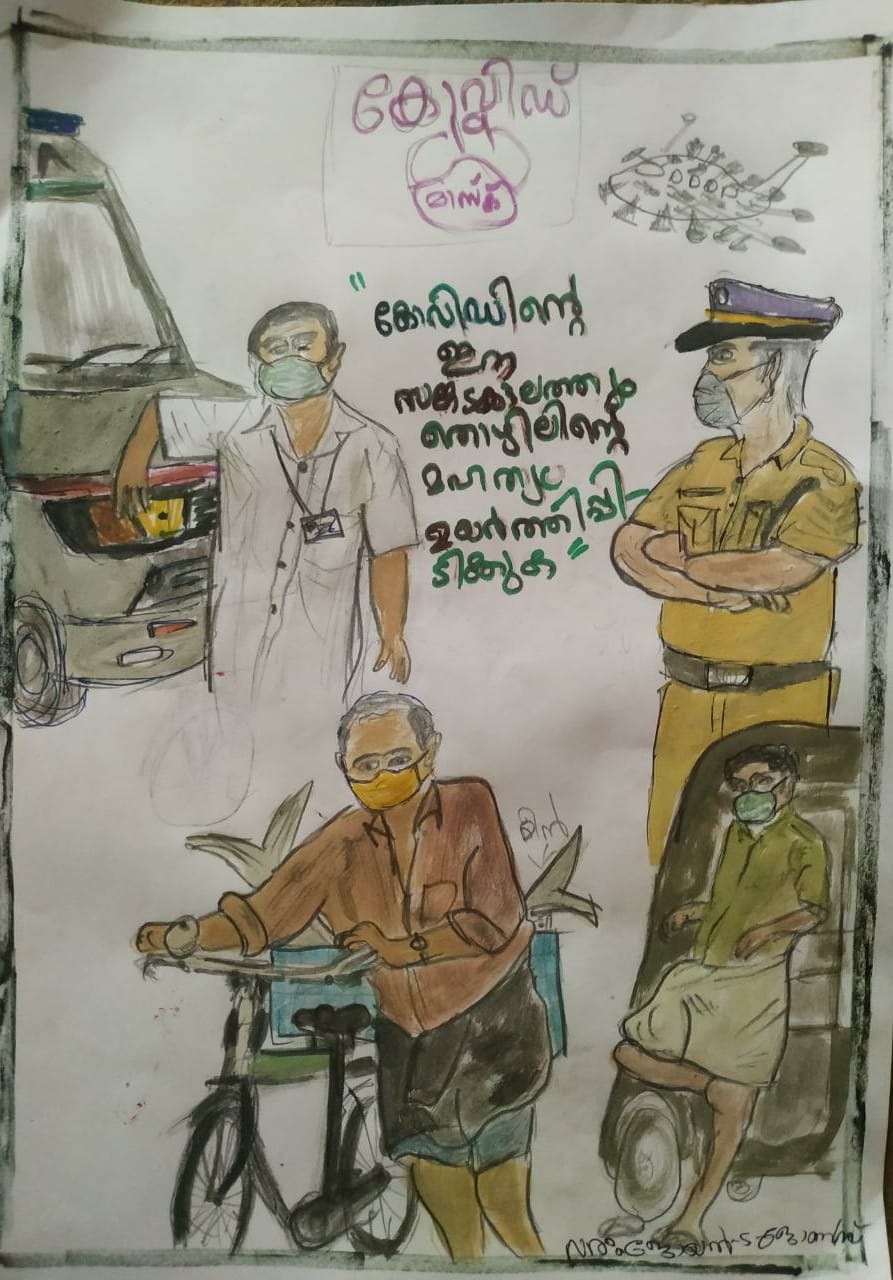 കോവിഡ്
മാസ്ക്
"കോവിഡിന്റെ
ഈ
സങ്കടകാലത്തും
തൊഴിലിന്റെ
മഹത്വം
ഉയർത്തിപ്പി-
ടിക്കുക"
മീൻ